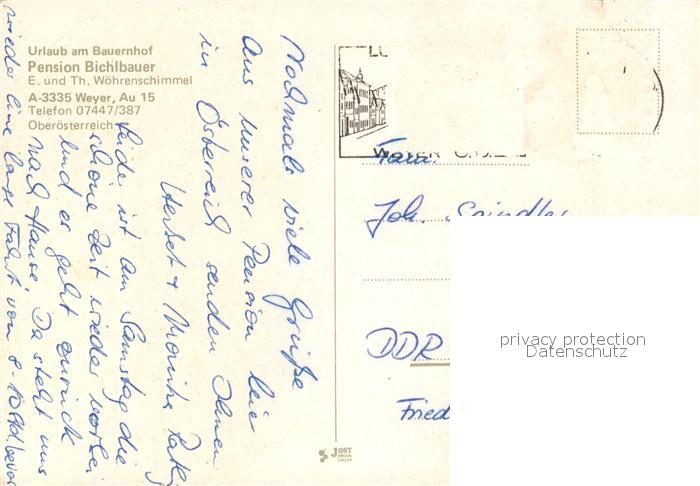 Urlaub am Bauernhof
Pension Bichlbauer
E. und Th. Wöhrenschimmel
A-3335 Weyer, Au 15
Telefon 07447/387
Oberösterreich
Nochmals viele Grüße
aus unserer Pension hier
in Österreich senden Ihnen
Herbert + Monika
Leide ist am Samstag die
schöne Zeit wieder vorbei
und es geht zurück
nach Hause. Da steht uns
wieder eine lange Fahrt von 8-10 Std. bevor
LU
WEYER O.Ö.
Fam.
Joh. Spindler
DDR
Fried
JOST
DRUCK
LINZ
privacy protection
Datenschutz